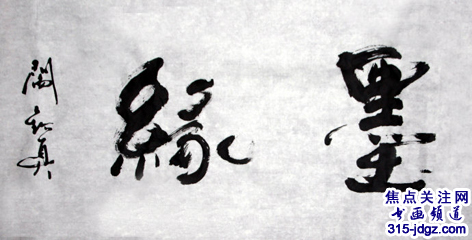 墨緣
焦点关注网
书画频道
315-jdgz.com